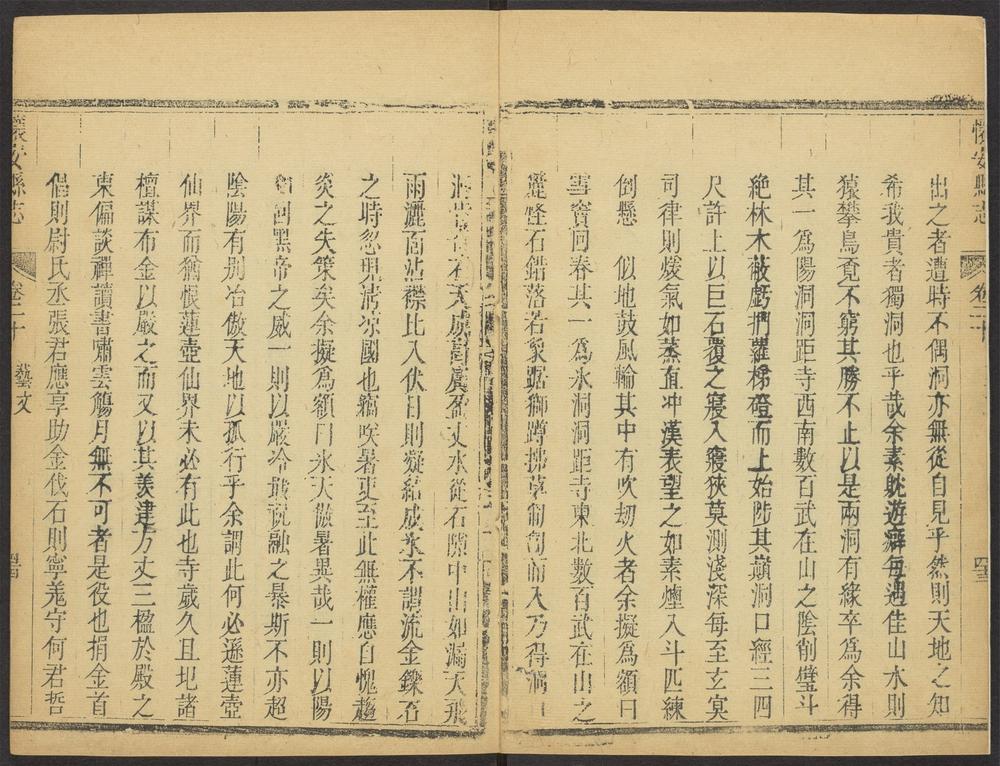 懷安縣志 卷二十
出之者遭時不偶洞亦無從自見乎然則天地之知
希我貴者獨洞也乎哉余素躭遊癖每遇佳山水則
猿攀鳥竟不窮其勝不止以是兩洞有緣卒為余得
其一為陽洞洞距寺西南數百武在山之陰削壁斗
絶林木蔽虧捫蘿梯磴而上始陟其巔洞口經三四
尺許上以巨石覆之寢入寢狹莫測淺深每至玄㝠
司律則煖氣如蒸直冲漢表望之如素煙入斗匹練
倒懸 似地鼓風輪其中有吹刼火者余擬為額曰
雪竇同春其一為氷洞洞距寺東北數百武在山之
怪石錯落若象踞獅蹲拂草匍匐而入乃得洞口
天成 盈丈水從石隙中出如漏天飛
雨灑面沾襟比入伏日則凝結成氷不謂流金鑠石
之時忽現清凉國也竊吹暑更至此無權應自愧趨
炎之失策矣余擬為額曰氷天傲暑異哉一則以陽
黑帝之威一則以嚴冷 祝融之暴斯不亦超
陰陽有别冶傲天地以孤行乎余謂此何必遜蓮壺
仙界而猶恨蓮壺仙界未必有此也寺歲久且圯諸
檀謀布金以嚴之而又以其羡建方丈三楹於殿之
東偏談禪讀書嘯雲觴月無不可者是役也捐金首
倡則尉氏丞張君應享助金伐石則寧羗守何君哲
懷安縣志 卷二十 藝文